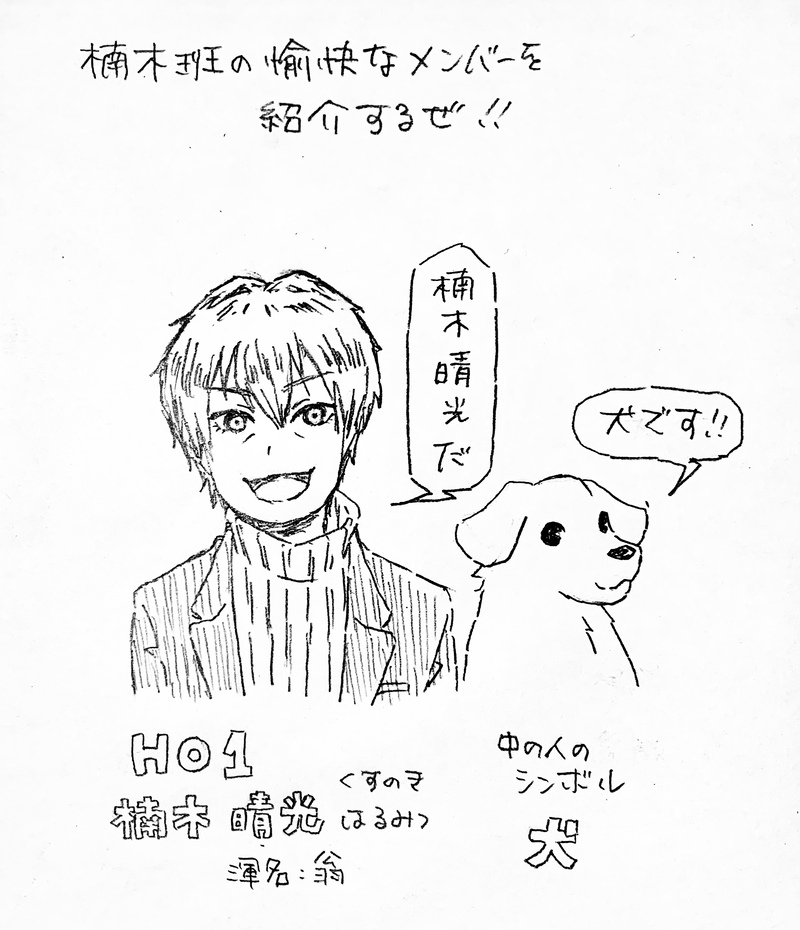 楠木班の愉快なメンバーを
紹介するぜ!!
楠木晴光だ
犬です!!
HO1
楠木 晴光
くすのき
はるみつ
渾名:翁
中の人の
シンボル
犬